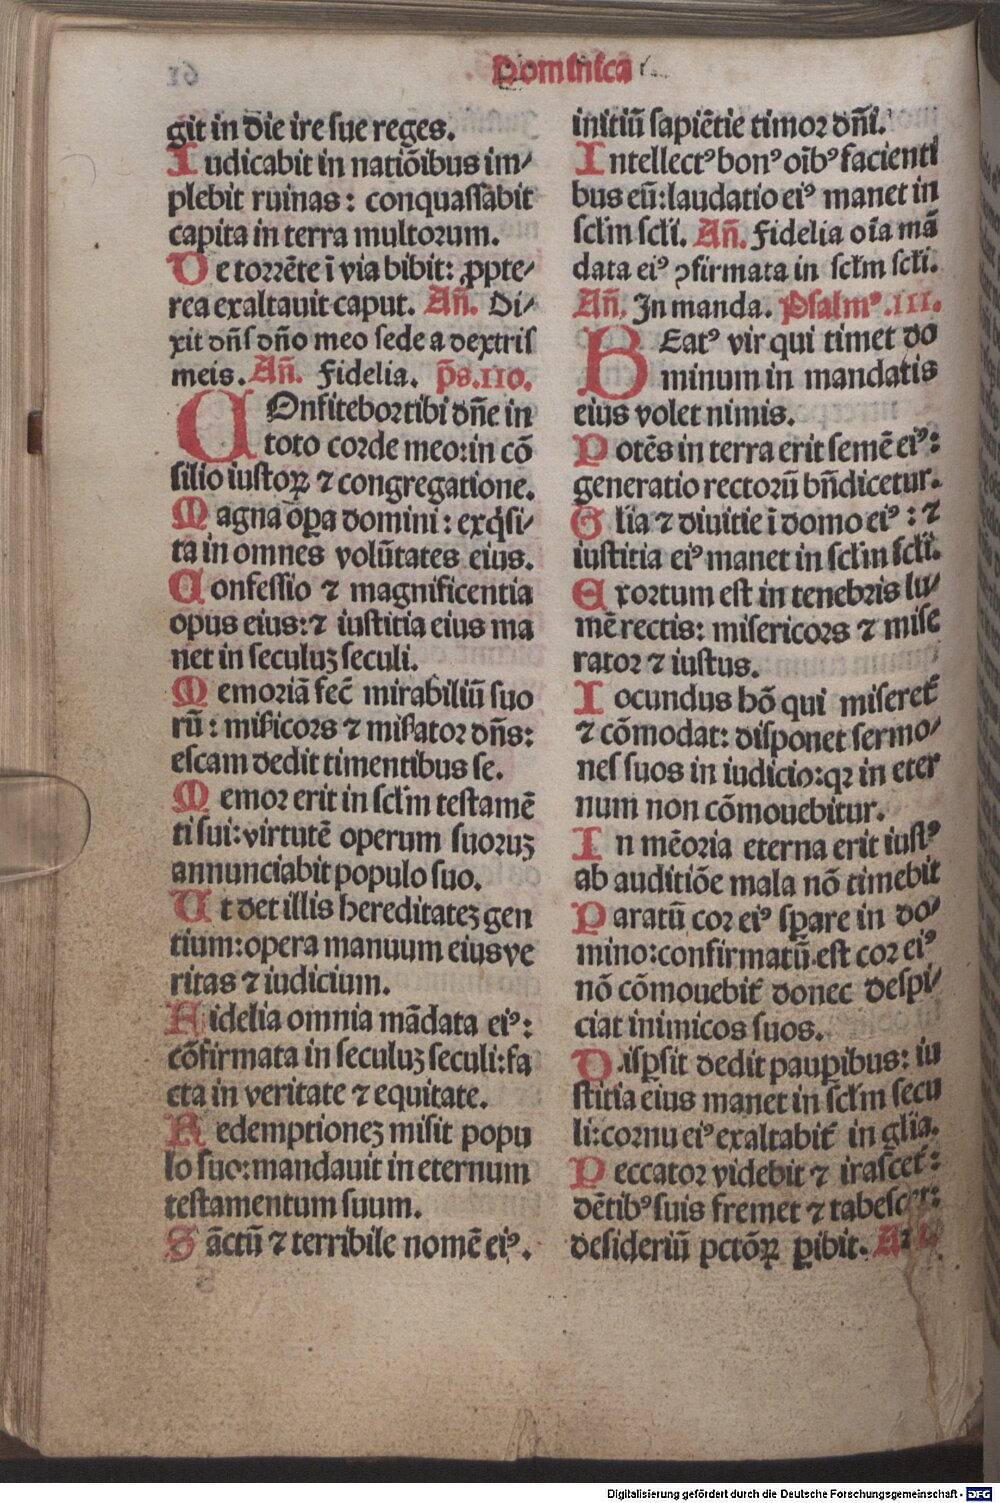 Dominica
git in die ire sue reges.
Iudicabit in natiõibus im/
plebit ruinas: conquassabit
capita in terra multorum.
De torrẽte ĩ via bibit: ꝓpte/
rea exaltauit caput. Añ. Di/
xit dñs dño meo sede a dextris
meis. Añ. Fidelia. p̃s. 110.
COnfitebor tibi dñe in
toto corde meo: in cõ
silio iustoꝝ ⁊ congregatione.
Magna oꝑa domini: exq̇si/
ta in omnes volũtates eius.
Confessio ⁊ magnificentia
opus eius: ⁊ iustitia eius ma
net in seculuꝫ seculi.
Memoriã fec̃ mirabiliũ suo
rũ: mißicors ⁊ mißator dñs:
escam dedit timentibus se.
Memor erit in scłm testamẽ
ti sui: virtutẽ operum suoruꝫ
annunciabit populo suo.
Ut det illis hereditateꝫ gen
tium: opera manuum eius ve
ritas ⁊ iudicium.
Fidelia omnia mãdata eiꝰ:
cõfirmata in seculuꝫ seculi: fa
cta in veritate ⁊ equitate.
Redemptioneꝫ misit popu
lo suo: mandauit in eternum
testamentum suum.
Sãctũ ⁊ terribile nomẽ eiꝰ.
initiũ sapiẽtie timor dñi.
Intellectꝰ bonꝰ oĩbꝰ facienti
bus eũ: laudatio eiꝰ manet in
scłm scłi. Añ. Fidelia oĩa mã
data eiꝰ ꝯfirmata in scłm scłi.
Añ. In manda. Psalmꝰ .111.
BEatꝰ vir qui timet do
minum in mandatis
eius volet nimis.
Potẽs in terra erit semẽ eiꝰ:
generatio rectorũ bñdicetur.
Glĩa ⁊ diuitie ĩ domo eiꝰ: ⁊
iustitia eiꝰ manet in scłm scłi.
Exortum est in tenebris lu/
mẽ rectis: misericors ⁊ mise
rator ⁊ iustus.
Iocundus hõ qui miseret̃
⁊ cõmodat: disponet sermo/
nes suos in iudicio: qꝛ in eter
num non cõmouebitur.
In mẽoria eterna erit iustꝰ
ab auditiõe mala nõ timebit
Paratũ cor eiꝰ sꝑare in do/
mino: confirmatũ est cor eiꝰ
nõ cõmouebit̃ donec despi/
ciat inimicos suos.
Disꝑsit dedit pauꝑibus: iu
stitia eius manet in scłm secu
li: cornu eiꝰ exaltabit̃ in glĩa.
Peccator videbit ⁊ irascet̃:
dẽtibꝰ suis fremet ⁊ tabescet:
desideriũ pctõꝝ ꝑibit.
Digitalisierung gefördert durch die Deutsche Forschungsgemeinschaft - DFG